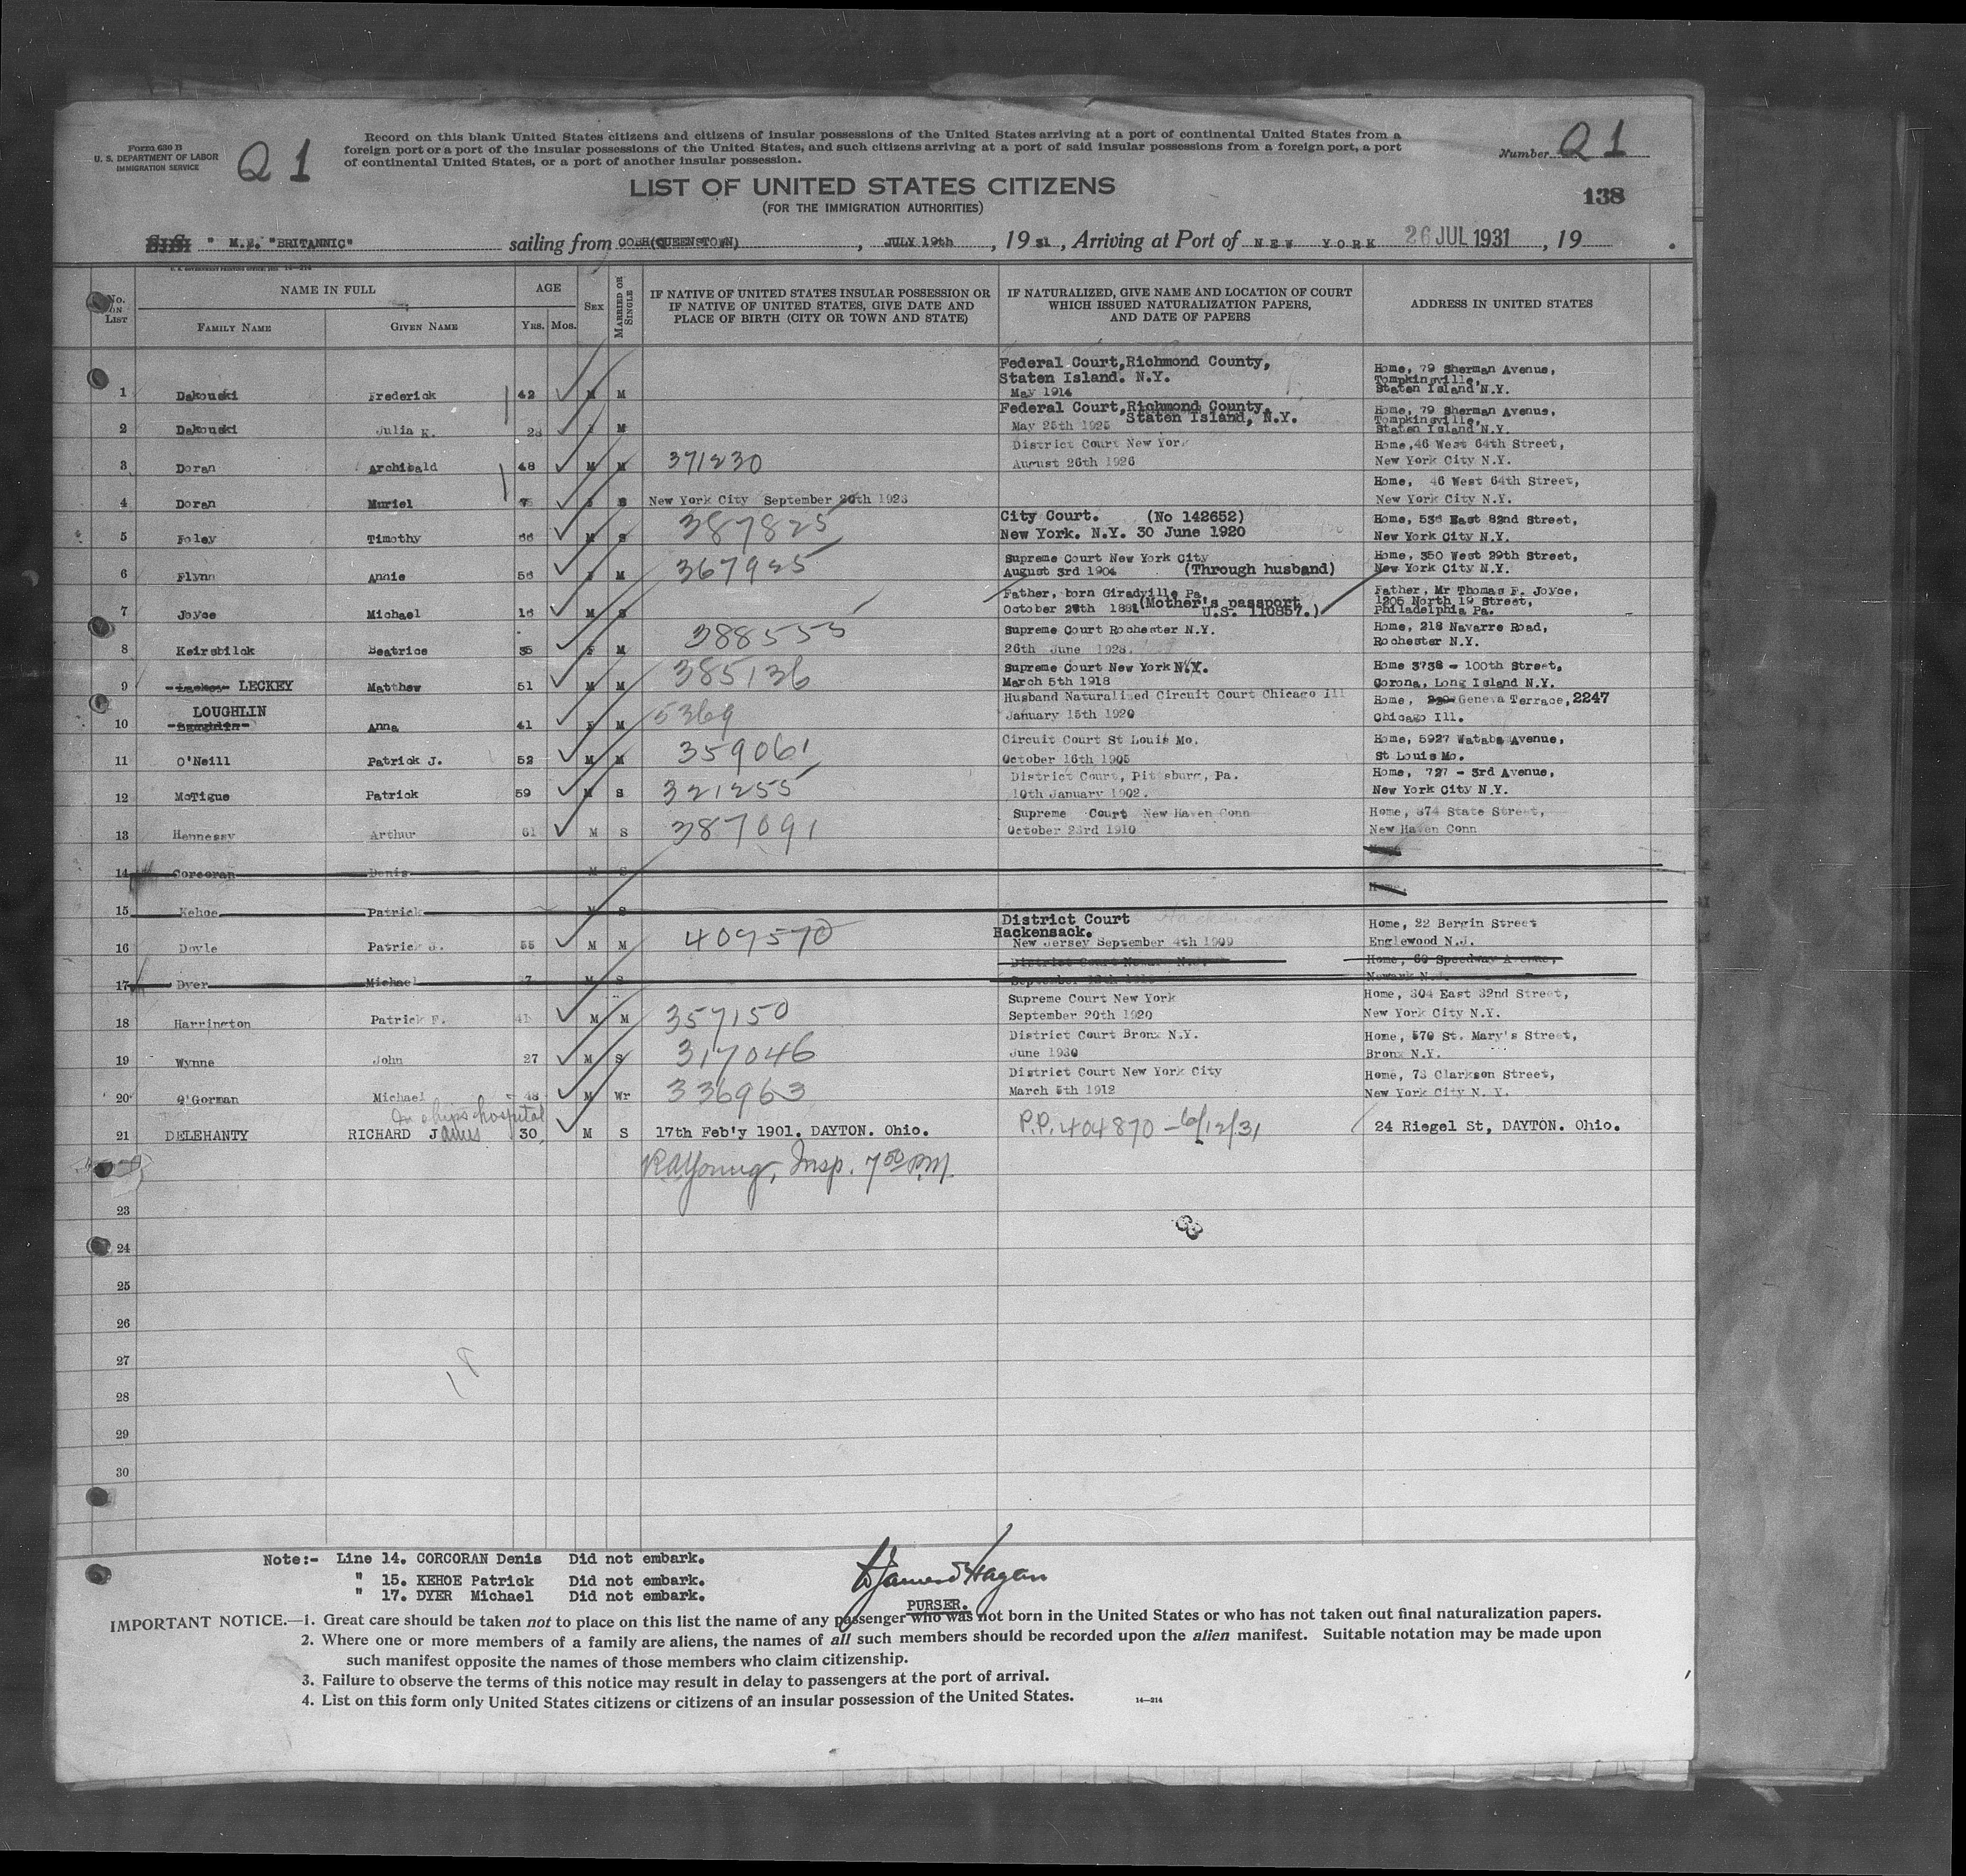 Form 630 B
U. S. DEPARTMENT OF LABOR
IMMIGRATION SERVICE
Q 1
Record on this blank United States citizens and citizens of insular possessions of the United States arriving at a port of continental United States from a
foreign port or a port of the insular possessions of the United States, and such citizens arriving at a port of said insular possessions from a foreign port, a port
of continental United States, or a port of another insular possession.
Number Q 1
138
LIST OF UNITED STATES CITIZENS
(FOR THE IMMIGRATION AUTHORITIES)
S.S. " M.V. "BRITANNIC" sailing from COBH(QUEENSTOWN), JULY 19th, 19 31, Arriving at Port of NEW YORK 26 JUL 1931, 19
U. S. GOVERNMENT PRINTING OFFICE 14—214
No. ON LIST NAME IN FULL AGE SEX MARRIED OR SINGLE IF NATIVE OF UNITED STATES INSULAR POSSESSION OR IF NATIVE OF UNITED STATES, GIVE DATE AND PLACE OF BIRTH (CITY OR TOWN AND STATE) IF NATURALIZED, GIVE NAME AND LOCATION OF COURT WHICH ISSUED NATURALIZATION PAPERS, AND DATE OF PAPERS ADDRESS IN UNITED STATES
FAMILY NAME GIVEN NAME YRS. MOS.
Federal Court, Richmond County, Home, 79 Sherman Avenue,
Staten Island. N.Y. Tompkinsville,
1 Dakouski Frederick 42 M M May 1914 Staten Island N.Y.
Federal Court, Richmond County, Home, 79 Sherman Avenue,
Staten Island, N.Y. Tompkinsville,
2 Dakouski Julia K. M May 25th 1925 Staten Island N.Y.
District Court New York Home, 46 West 64th Street,
3 Doran Archibald 48 M M 371230 August 26th 1926 New York City N.Y.
Home, 46 West 64th Street,
4 Doran Muriel S New York City September 20th 1923 New York City N.Y.
City Court. (No 142652) Home, 536 East 82nd Street,
5 Foley Timothy M S 387825 New York. N.Y. 30 June 1920 New York City N.Y.
Supreme Court New York City Home, 350 West 29th Street,
6 Flynn Annie 56 F M 367925 August 3rd 1904 (Through husband) New York City N.Y.
Father, born Giradville Pa Father, Mr Thomas F. Joyce,
7 Joyce Michael 16 M S October 1881 (Mother's passport U.S. 110857.) 1205 North 19 Street, Philadelphia Pa.
Supreme Court Rochester N.Y. Home, 218 Navarre Road,
8 Keirsbilck Beatrice 35 F M 388555 26th June 1928. Rochester N.Y.
Supreme Court New York N.Y. Home 3738 - 100th Street,
9 LECKEY Matthew 51 M M 385136 March 5th 1918 Corona, Long Island N.Y.
LOUGHLIN Husband Naturalized Circuit Court Chicago Ill Home, Geneva Terrace, 2247
10 Anna 41 F M 5369 January 15th 1920 Chicago Ill.
Circuit Court St Louis Mo. Home, 5927 Wataba Avenue,
11 O'Neill Patrick J. 52 M M 359061 October 16th 1905 St Louis Mo.
District Court, Pittsburg, Pa. Home, 727 - 3rd Avenue,
12 McTigue Patrick 59 M S 321255 10th January 1902. New York City N.Y.
Supreme Court New Haven Conn Home, 874 State Street,
13 Hennessy Arthur 61 M S 387091 October 23rd 1910 New Haven Conn
Home
14 Corcoran Denis M S
Home.
15 Kehoe Patrick M S
District Court
Hackensack. Home, 22 Bergin Street
16 Doyle Patrick J. 55 M M 407570 New Jersey September 4th 1909 Englewood N.J.
District Court Newark N.J. Home, 60 Speedway Avenue,
17 Dyer Michael M S Newark N.J.
Supreme Court New York Home, 304 East 32nd Street,
18 Harrington Patrick F. 41 M M 357150 September 20th 1920 New York City N.Y.
District Court Bronx N.Y. Home, 570 St. Mary's Street,
19 Wynne John 27 M S 317046 June 1930 Bronx N.Y.
District Court New York City Home, 73 Clarkson Street,
20 O'Gorman Michael 48 M Wr 336963 March 5th 1912 New York City N. Y.
In ships hospital
21 DELEHANTY RICHARD James 30 M S 17th Feb'y 1901. DAYTON. Ohio. P.P. 404870 - 6/12/31 24 Riegel St, DAYTON. Ohio.
R.A. Young, Insp. 7 50 P.M.
23
24
25
26
27
18
28
29
30
Note:- Line 14. CORCORAN Denis Did not embark.
" 15. KEHOE Patrick Did not embark.
" 17. DYER Michael Did not embark.
PURSER.
IMPORTANT NOTICE.—1. Great care should be taken not to place on this list the name of any passenger who was not born in the United States or who has not taken out final naturalization papers.
2. Where one or more members of a family are aliens, the names of all such members should be recorded upon the alien manifest. Suitable notation may be made upon
such manifest opposite the names of those members who claim citizenship.
3. Failure to observe the terms of this notice may result in delay to passengers at the port of arrival.
4. List on this form only United States citizens or citizens of an insular possession of the United States. 14—214